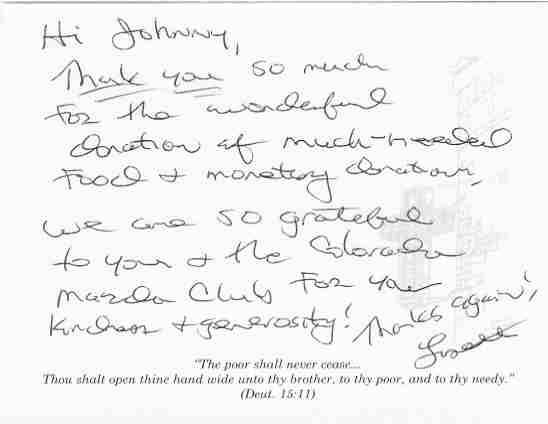 Hi Johnny,
Thank you so much
for the wonderful
donation of much-needed
food + monetary donation.
We are so grateful
to you + the Colorado
Mazda Club for your
kindness + generosity! Thanks again!
"The poor shall never cease...
Thou shalt open thine hand wide unto thy brother, to thy poor, and to thy needy."
(Deut. 15:11)